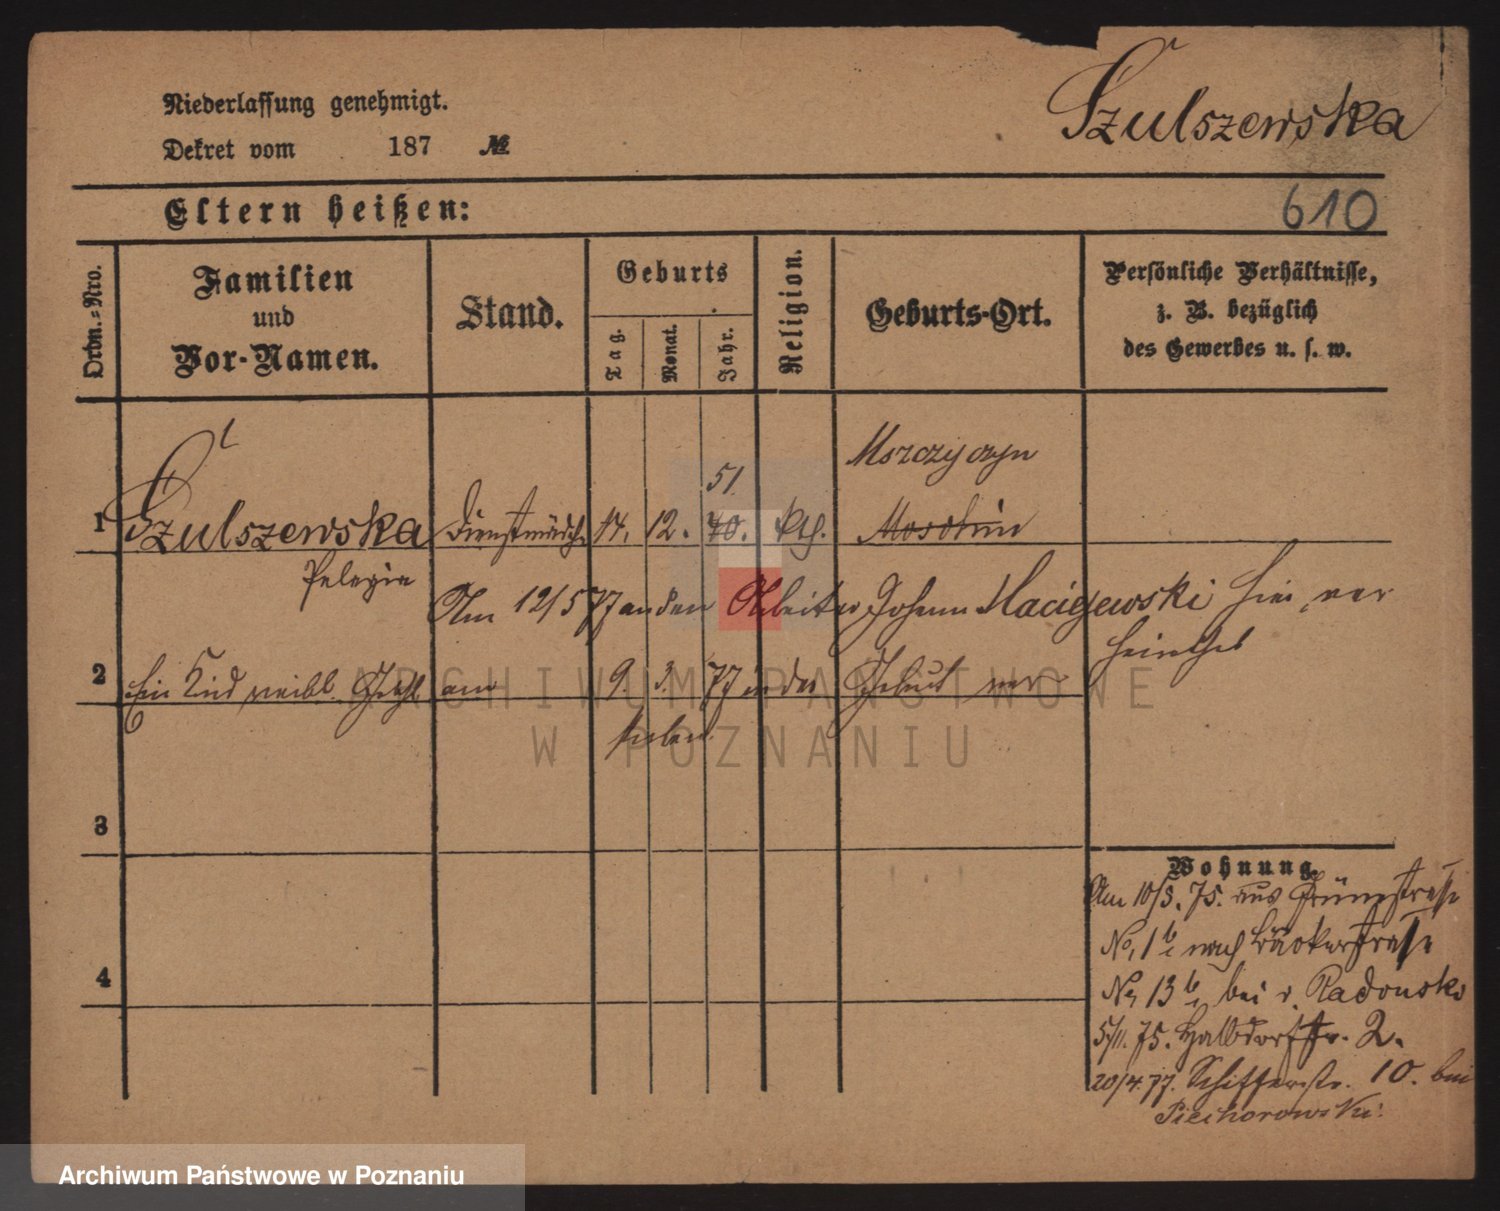 Szulszewska
Niederlassung genehmigt.
Dekret vom 187 №
Eltern heißen:
610
Ordn.-Nro.
Familien
und
Vor-Namen.
Stand.
Geburts
Tag.
Monat.
Jahr.
Religion.
Geburts-Ort.
Persönliche Verhältnisse,
z. B. bezüglich
des Gewerbes u. s. w.
Mszczyczyn
51.
1 Szulszewska Dienstmädch. 14. 12. 40. kth. Moschin
Pelagia
Am 12/5 77 an den Arbeiter Johann Maciejewski hier ver
heirathet
2 Ein Kind weibl. Geschl. am 9. 3. 77 in der Geburt ver
storben.
3
4
Wohnung.
Am 10/3. 75. aus Grünestrasse
No. 1b nach Bäckerstrasse
No. 13b bei v. Radonski
5/11. 75. Halbdorfstr. 2.
20/4. 77. Schifferstr. 10. bei
Piechorowski.
ARCHIWUM PAŃSTWOWE
W POZNANIU
Archiwum Państwowe w Poznaniu